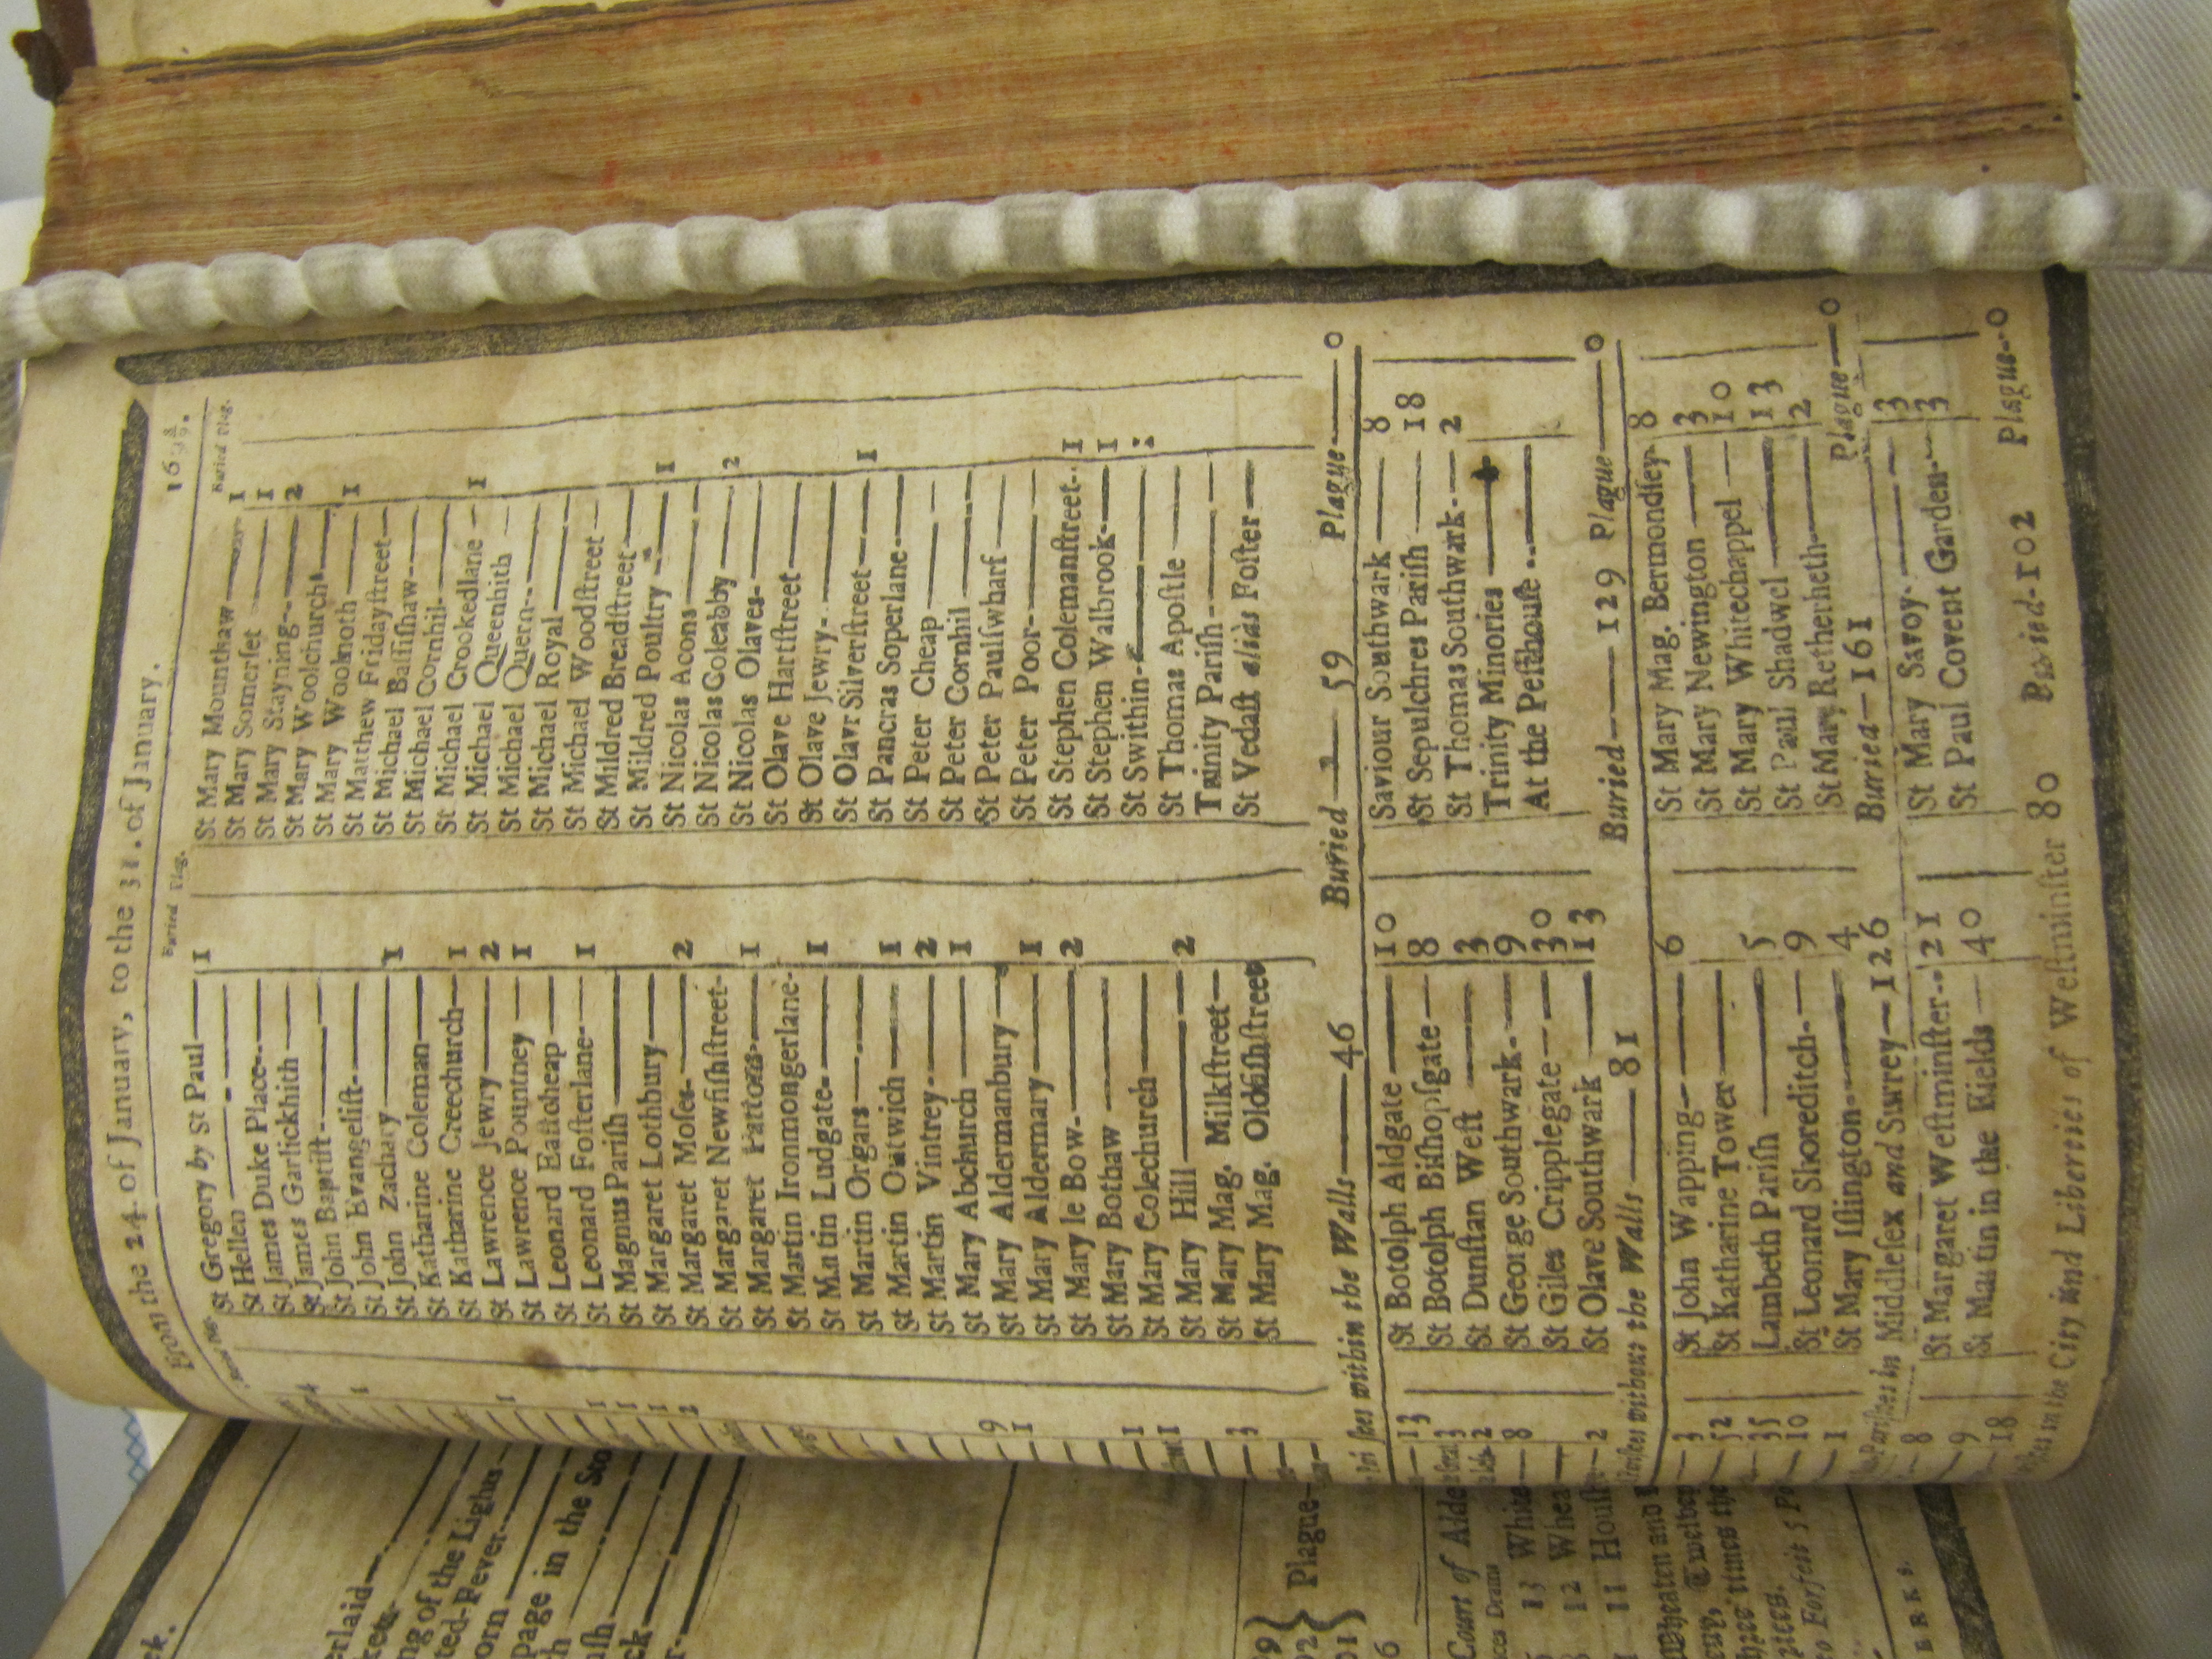 From the 24. of January, to the 31. of January. 16 8/9.
Buried Plag.
St Gregory by St Paul — 1
St Hellen —
St James Duke Place —
St James Garlickhith —
St John Baptiſt —
St John Evangeliſt —
St John Zachary — 1
St Katharine Coleman —
St Katharine Creechurch — 1
St Lawrence Jewry — 2
St Lawrence Pountney — 1
St Leonard Eaſtcheap —
St Leonard Foſterlane — 1
St Magnus Pariſh —
St Margaret Lothbury —
St Margaret Moſes — 2
St Margaret Newfiſhſtreet -
St Margaret Pattons — 1
St Martin Ironmongerlane -
St Martin Ludgate — 1
St Martin Orgars —
St Martin Outwich — 1
St Martin Vintrey — 2
St Mary Abchurch — 1
St Mary Aldermanbury —
St Mary Aldermary — 1
St Mary le Bow — 2
St Mary Bothaw —
St Mary Colechurch —
St Mary Hill — 2
St Mary Mag. Milkſtreet —
St Mary Mag. Oldfiſhſtreet
Buried Plag.
St Mary Mounthaw — 1
St Mary Somerſet — 1
St Mary Stayning — 2
St Mary Woolchurch —
St Mary Woolnoth — 1
St Matthew Fridayſtreet —
St Michael Baſſiſhaw —
St Michael Cornhil —
St Michael Crookedlane — 1
St Michael Queenhith —
St Michael Quern —
St Michael Royal —
St Michael Woodſtreet —
St Mildred Breadſtreet —
St Mildred Poultry — 1
St Nicolas Acons —
St Nicolas Coleabby — 2
St Nicolas Olaves —
St Olave Hartſtreet —
St Olave Jewry —
St Olavr Silverſtreet — 1
St Pancras Soperlane —
St Peter Cheap —
St Peter Cornhil —
St Peter Paulſwharf —
St Peter Poor —
St Stephen Colemanſtreet — 1
St Stephen Walbrook — 1
St Swithin —
St Thomas Apoſtle —
Trinity Pariſh —
St Vedaſt aliàs Foſter —
within the Walls — 46 Buried — 59 Plague — 0
St Botolph Aldgate — 10
St Botolph Biſhopſgate — 8
St Dunſtan Weſt — 3
St George Southwark — 9
St Giles Cripplegate — 30
St Olave Southwark — 13
Saviour Southwark — 8
St Sepulchres Pariſh — 18
St Thomas Southwark — 2
Trinity Minories —
At the Peſthouſe —
without the Walls — 81 Buried — 129 Plague — 0
St John Wapping — 6
St Katharine Tower —
Lambeth Pariſh — 5
St Leonard Shoreditch — 9
St Mary Iſlington — 4
St Mary Mag. Bermondſey 8
St Mary Newington — 3
St Mary Whitechappel — 10
St Paul Shadwel — 13
St Mary Retherheth — 2
Pariſhes in Middleſex and Surrey — 126 Buried — 161 Plague — 0
St Margaret Weſtminſter — 21
St Martin in the Fields — 40
St Mary Savoy — 3
St Paul Covent Garden — 3
in the City and Liberties of Weſtminſter 80 Buried - 102 Plague - 0
of the Lighus
ted-Fever
page in the
Plague
Court of
13 White
12
11